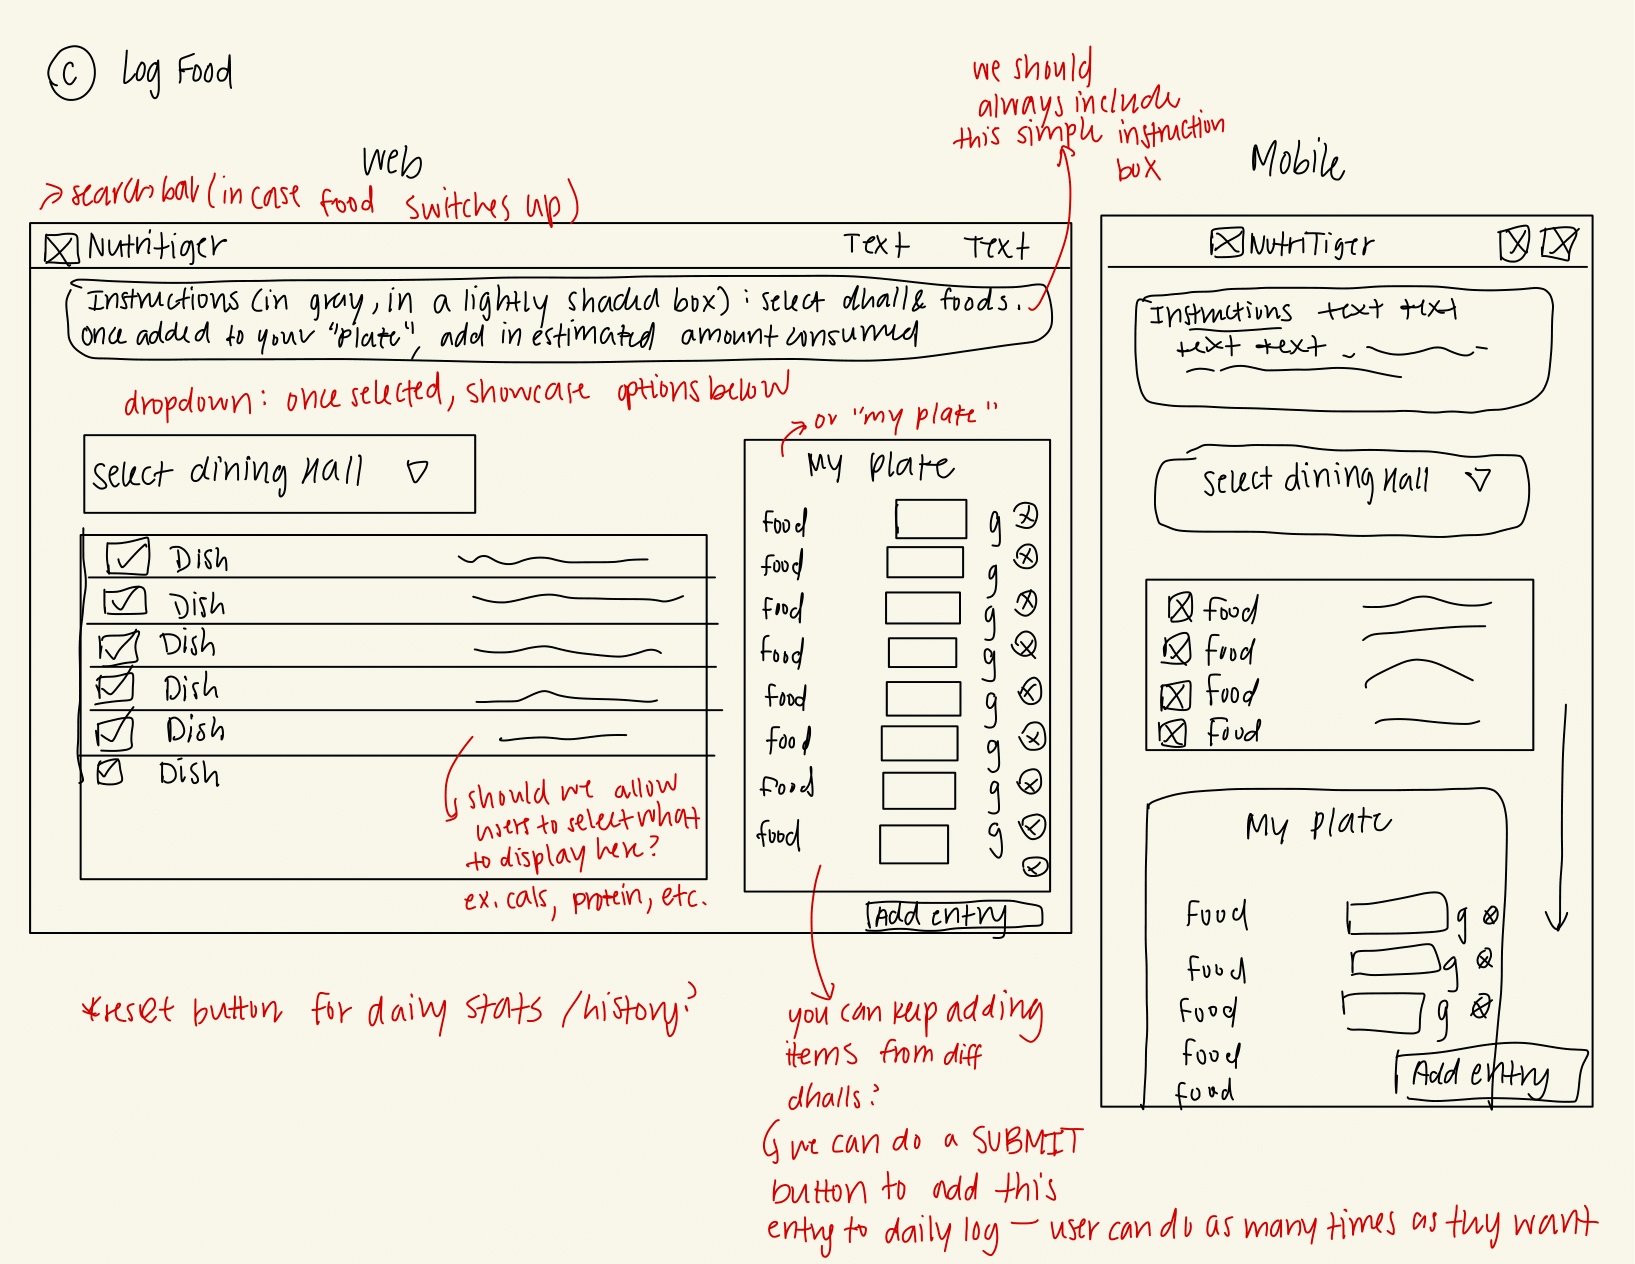 C Log Food
we should
always include
this simple instruction
box
Web
Mobile
> search bar (in case food switches up)
Nutritiger Text Text
Instructions (in gray, in a lightly shaded box) : select dhall & foods.
once added to your "plate", add in estimated amount consumed
dropdown: once selected, showcase options below
or "my plate"
Select dining Hall
My Plate
food g
food g
food g
food g
food g
food g
Food g
food g
Dish
Dish
Dish
Dish
Dish
Dish
should we allow
users to select what
to display here?
ex. cals, protein, etc.
Add entry
NutriTiger
Instructions text text
text text
Select dining Hall
food
food
Food
Food
My Plate
Food g
Food g
Food g
Food
food
Add entry
*reset button for daily stats / history?
you can keep adding
items from diff
dhalls?
we can do a SUBMIT
button to add this
entry to daily log — user can do as many times as they want